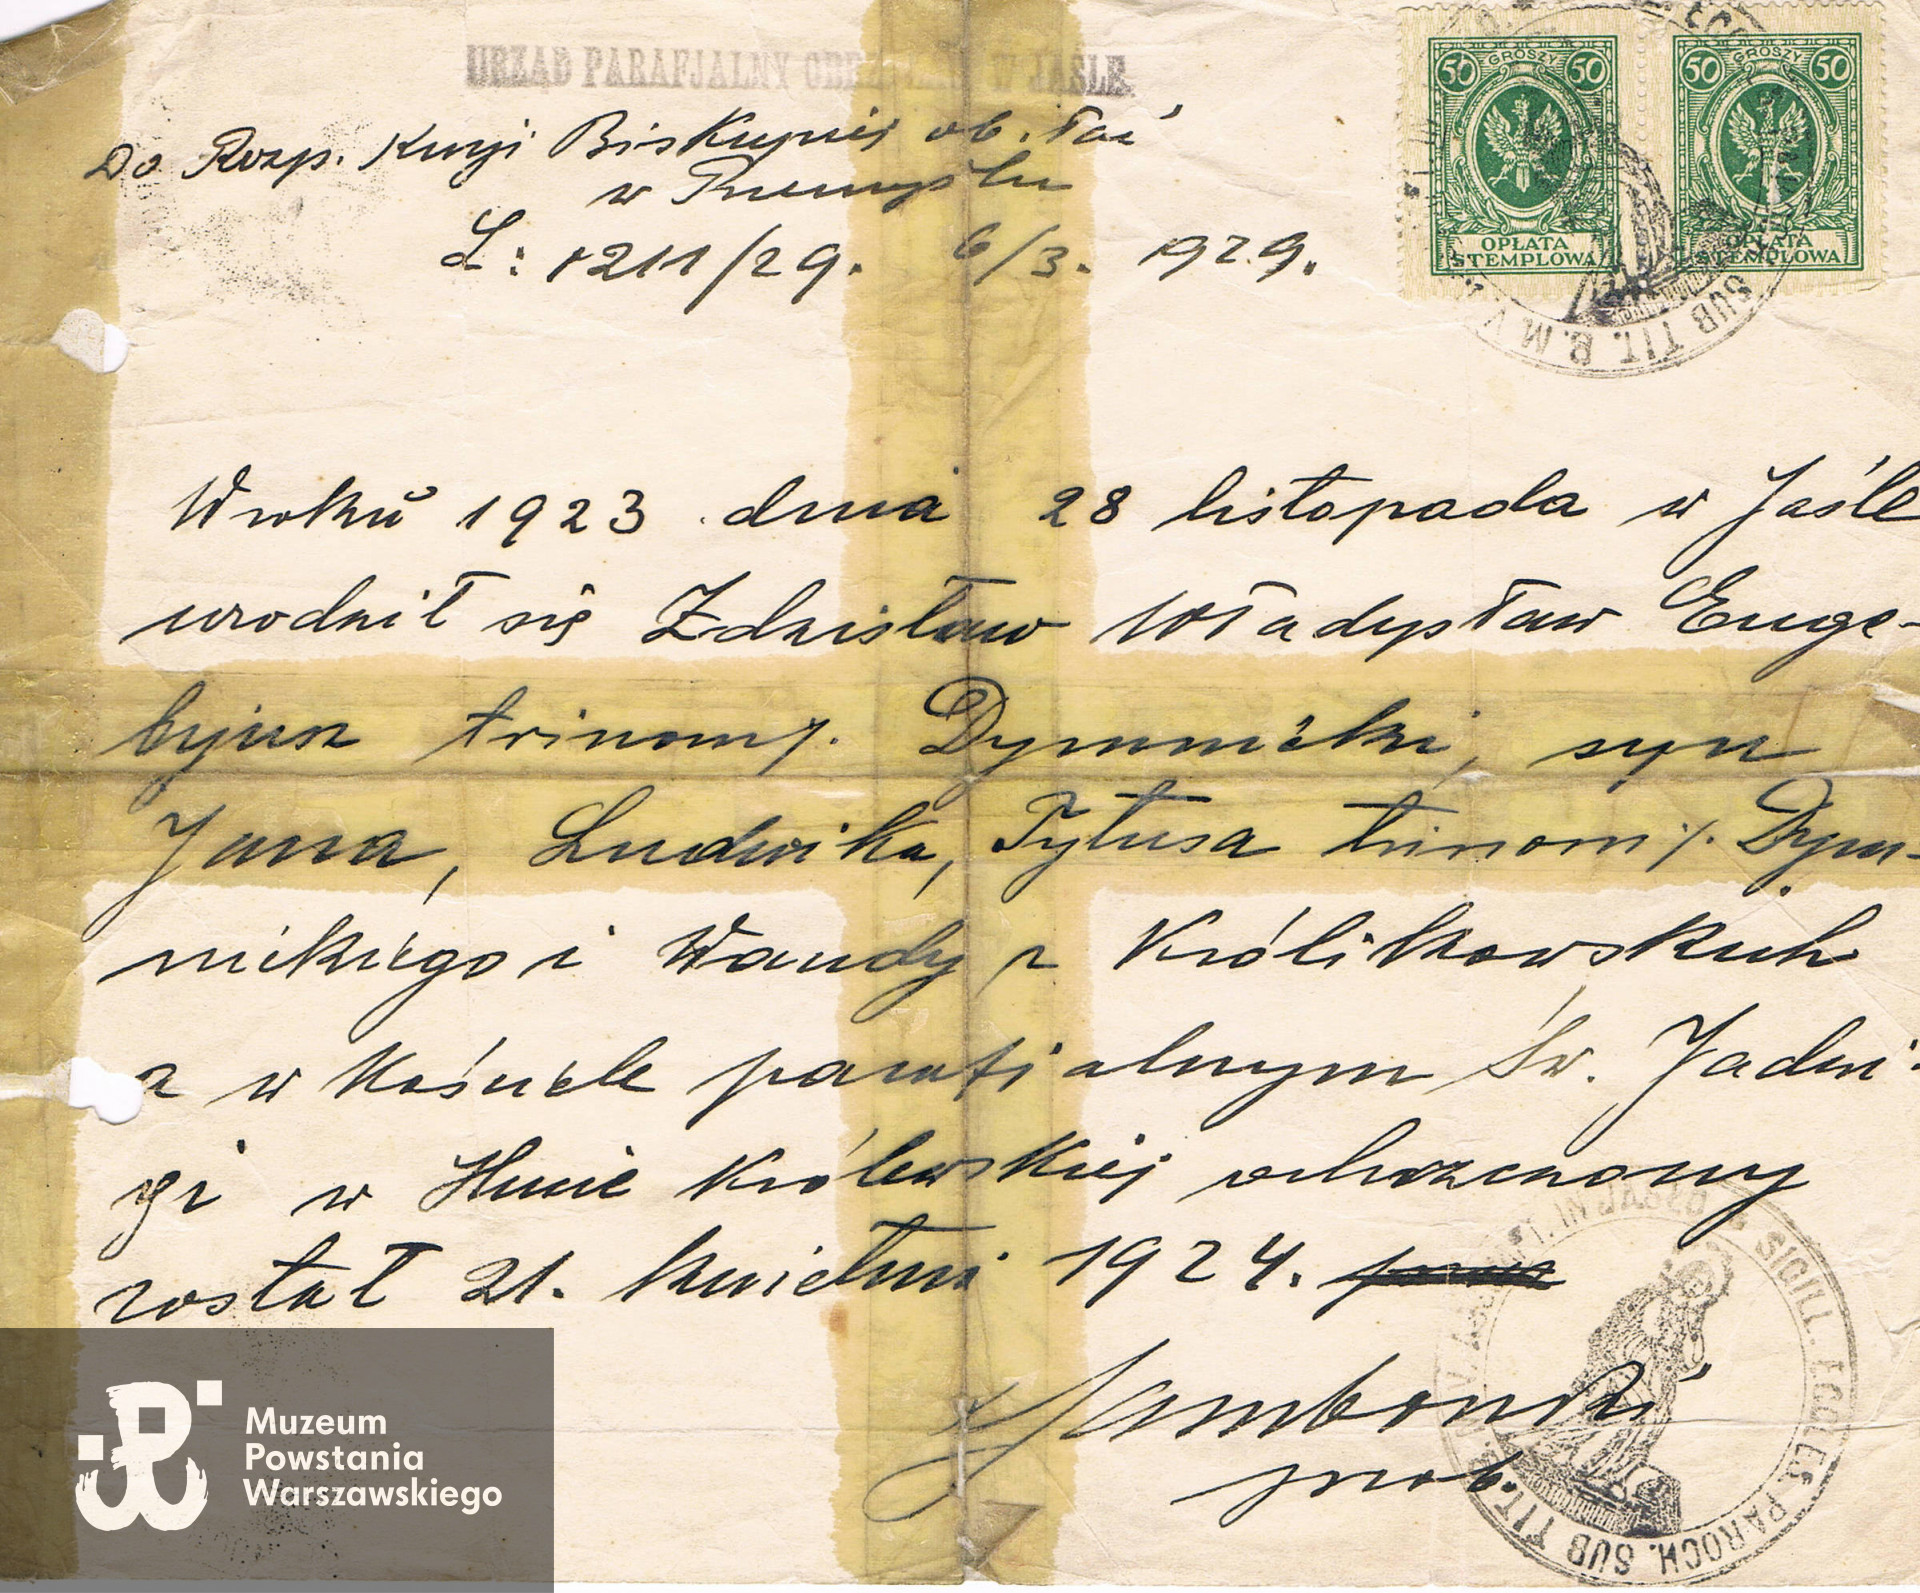 URZĄD PARAFJALNY OBRZ. ŁAC. W JAŚLE.
Do Rozp. Kurji Biskupiej ob. łać
w Przemyślu
L: 1211/29. 6/3. 1929.
50 GROSZY 50
OPŁATA
STEMPLOWA
50 GROSZY 50
OPŁATA
STEMPLOWA
SUB TIT. B. M. V.
W roku 1923 dnia 28 listopada w Jaśle
urodził się Zdzisław Władysław Euge-
bjusz trinom/. Dymnicki, syn
Jana, Ludwika, Tytusa trinom/. Dym-
nickiego i Wandy z Królikowskich
a w kościele parafjalnym Św. Jadwi-
gi w Hucie Królewskiej ochrzczony
został 21. kwietnia 1924.
prob.
SIGILL. ECCLES. PAROCH. SUB TIT. B. M. V. ASSUMPT. IN JASŁO
Muzeum
Powstania
Warszawskiego